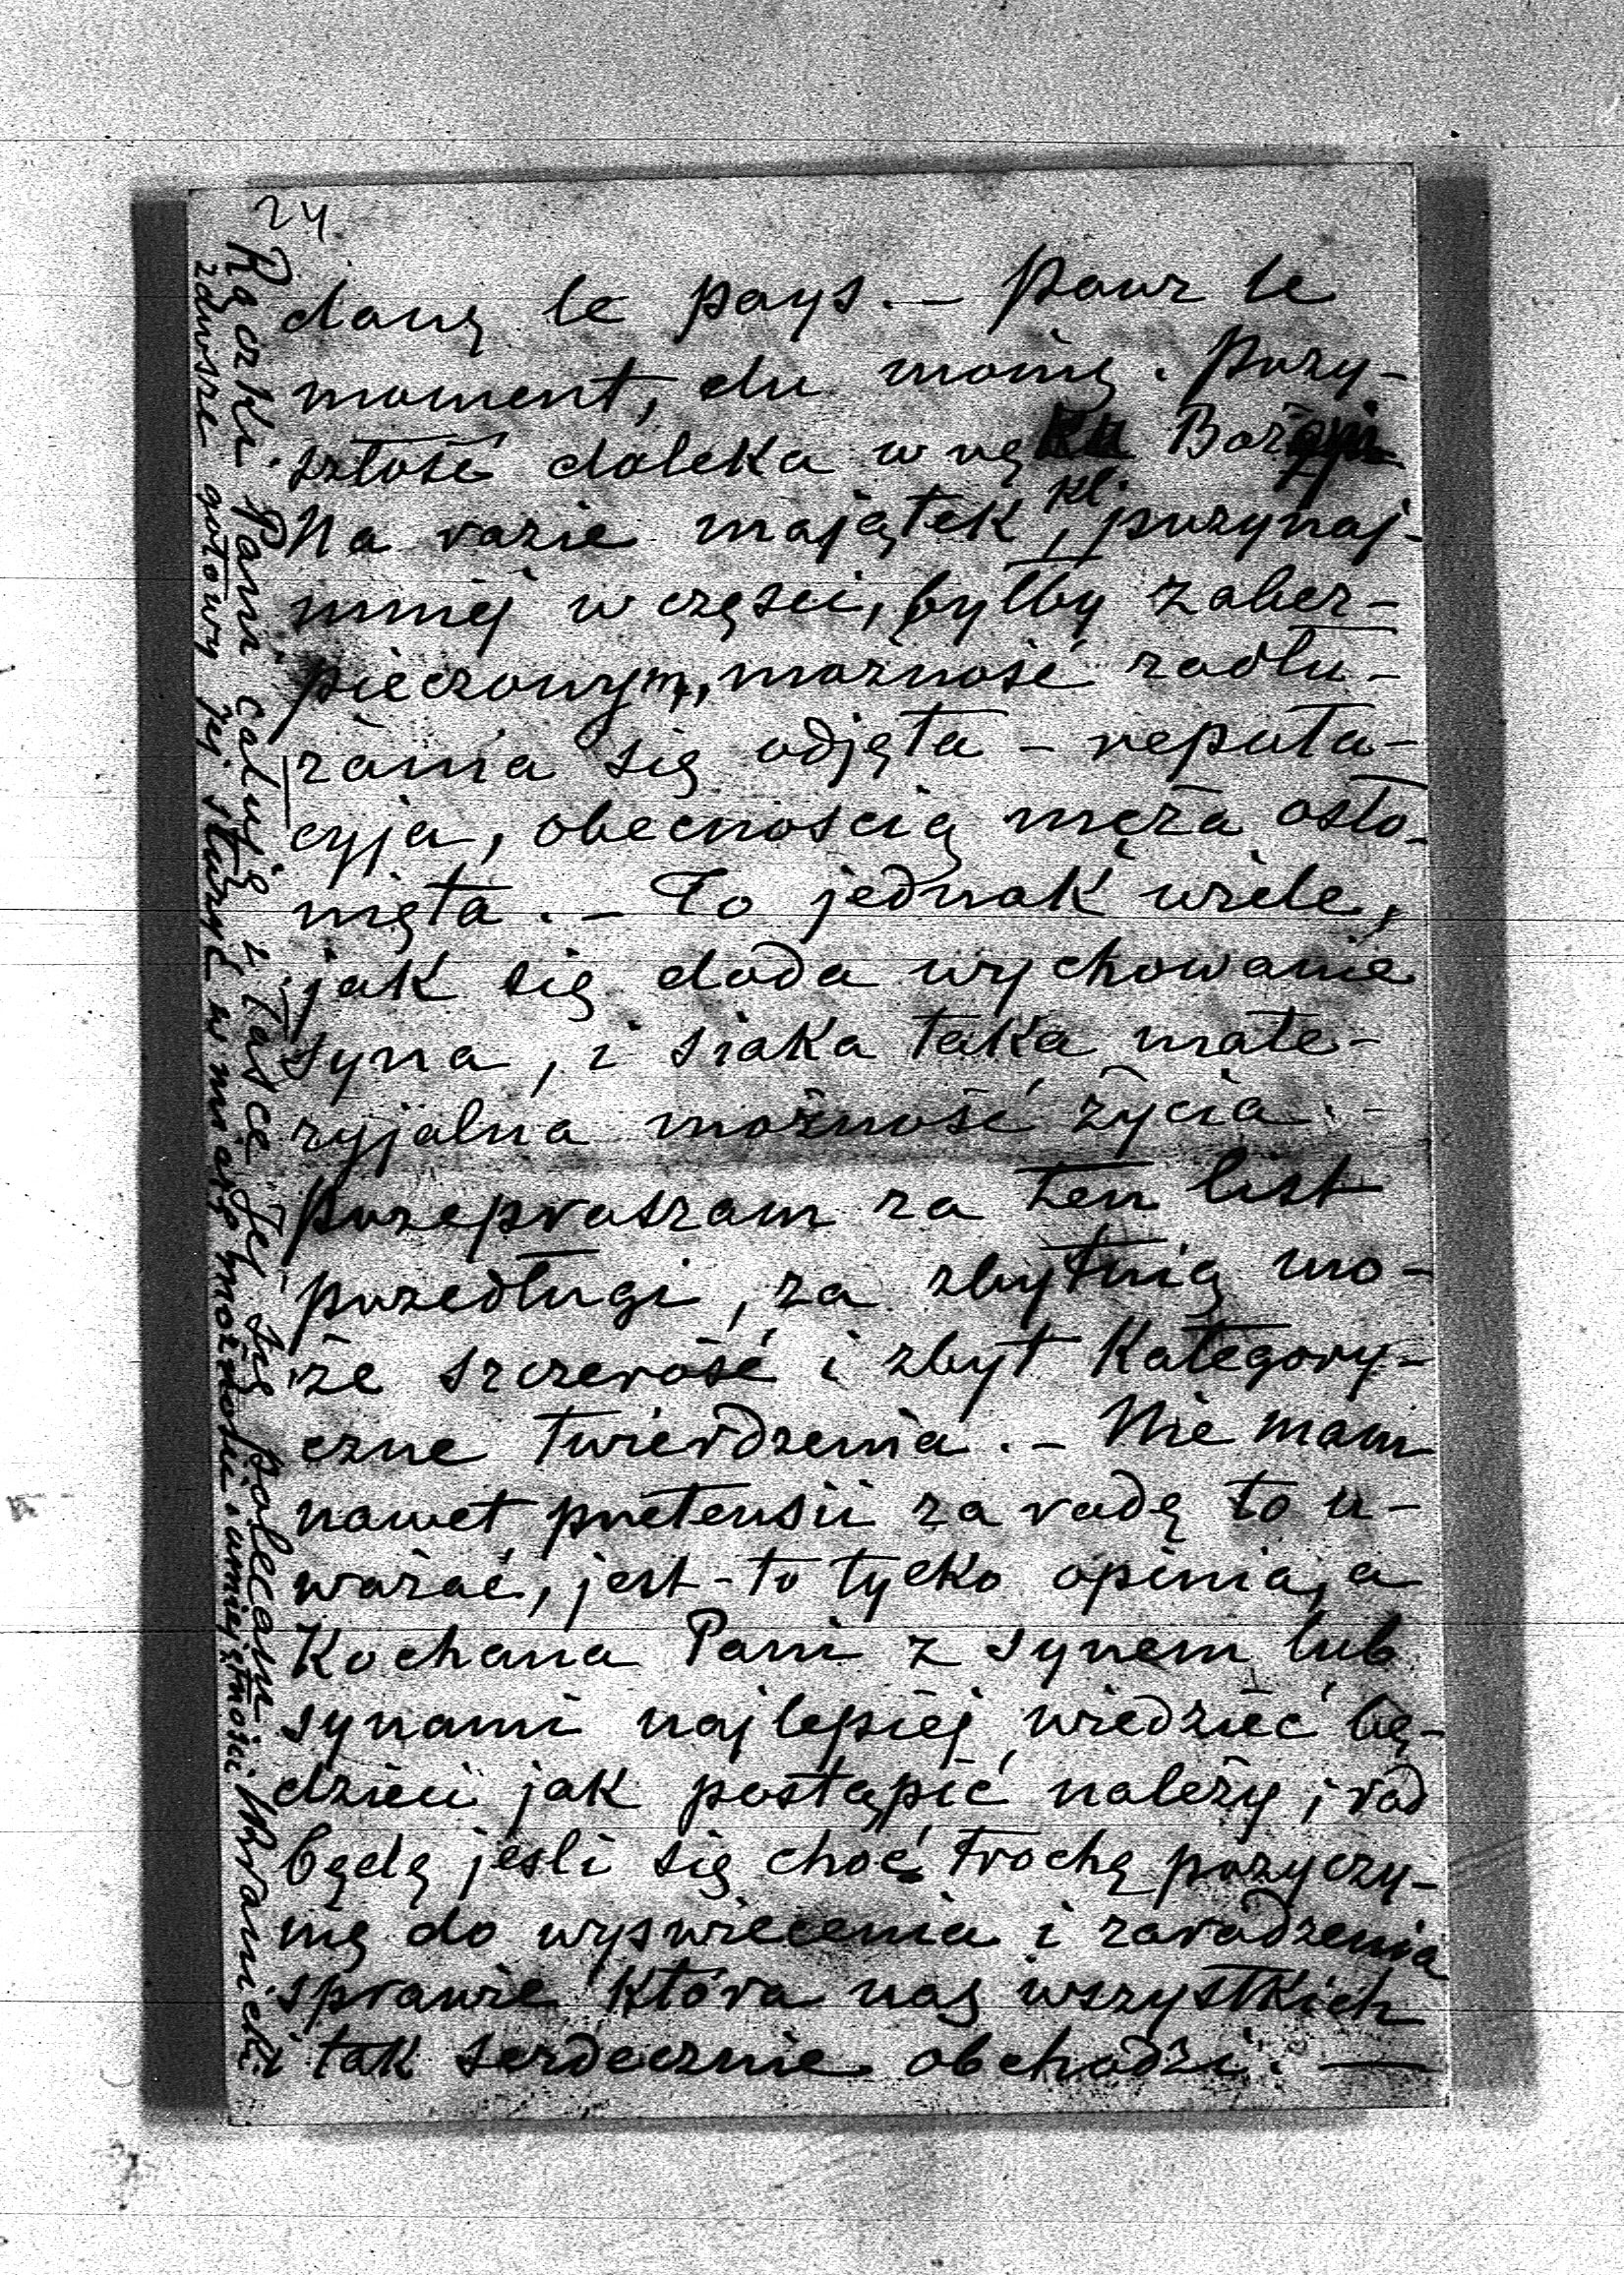 24
dans le pays. — Pour le
moment, du moins. Przy-
szłość daleka w ręku Bożym
Na razie majątek kl., przynaj-
mniéj w części, byłby zabez-
pieczonym, możność zadłu-
żania się odjęta — reputa-
cyja, obecnością męża osło-
nięta. — To jednak wiele,
jak się doda wychowanie
syna, i siaka taka mate-
ryjalna możność życia. —
Przepraszam za ten list
przedługi, za zbytnią mo-
że szczerość i zbyt kategory-
czne twierdzenia. — Nie mam
nawet pretensii za radę to u-
ważać, jest-to tylko opinia, a
Kochana Pani z synem lub
synami najlepiéj wiedzieć bę-
dzieci jak postąpić należy, rad
będę jeśli się choć trochę przyczy-
nię do wyswiecenia i zaradzenia
sprawie która nas wszystkich
tak serdecznie obchodzi. —
Rączki Pani całuję i łasce Jej się polecam
zawsze gotowy jej służyć w miarę możności i umiejętności